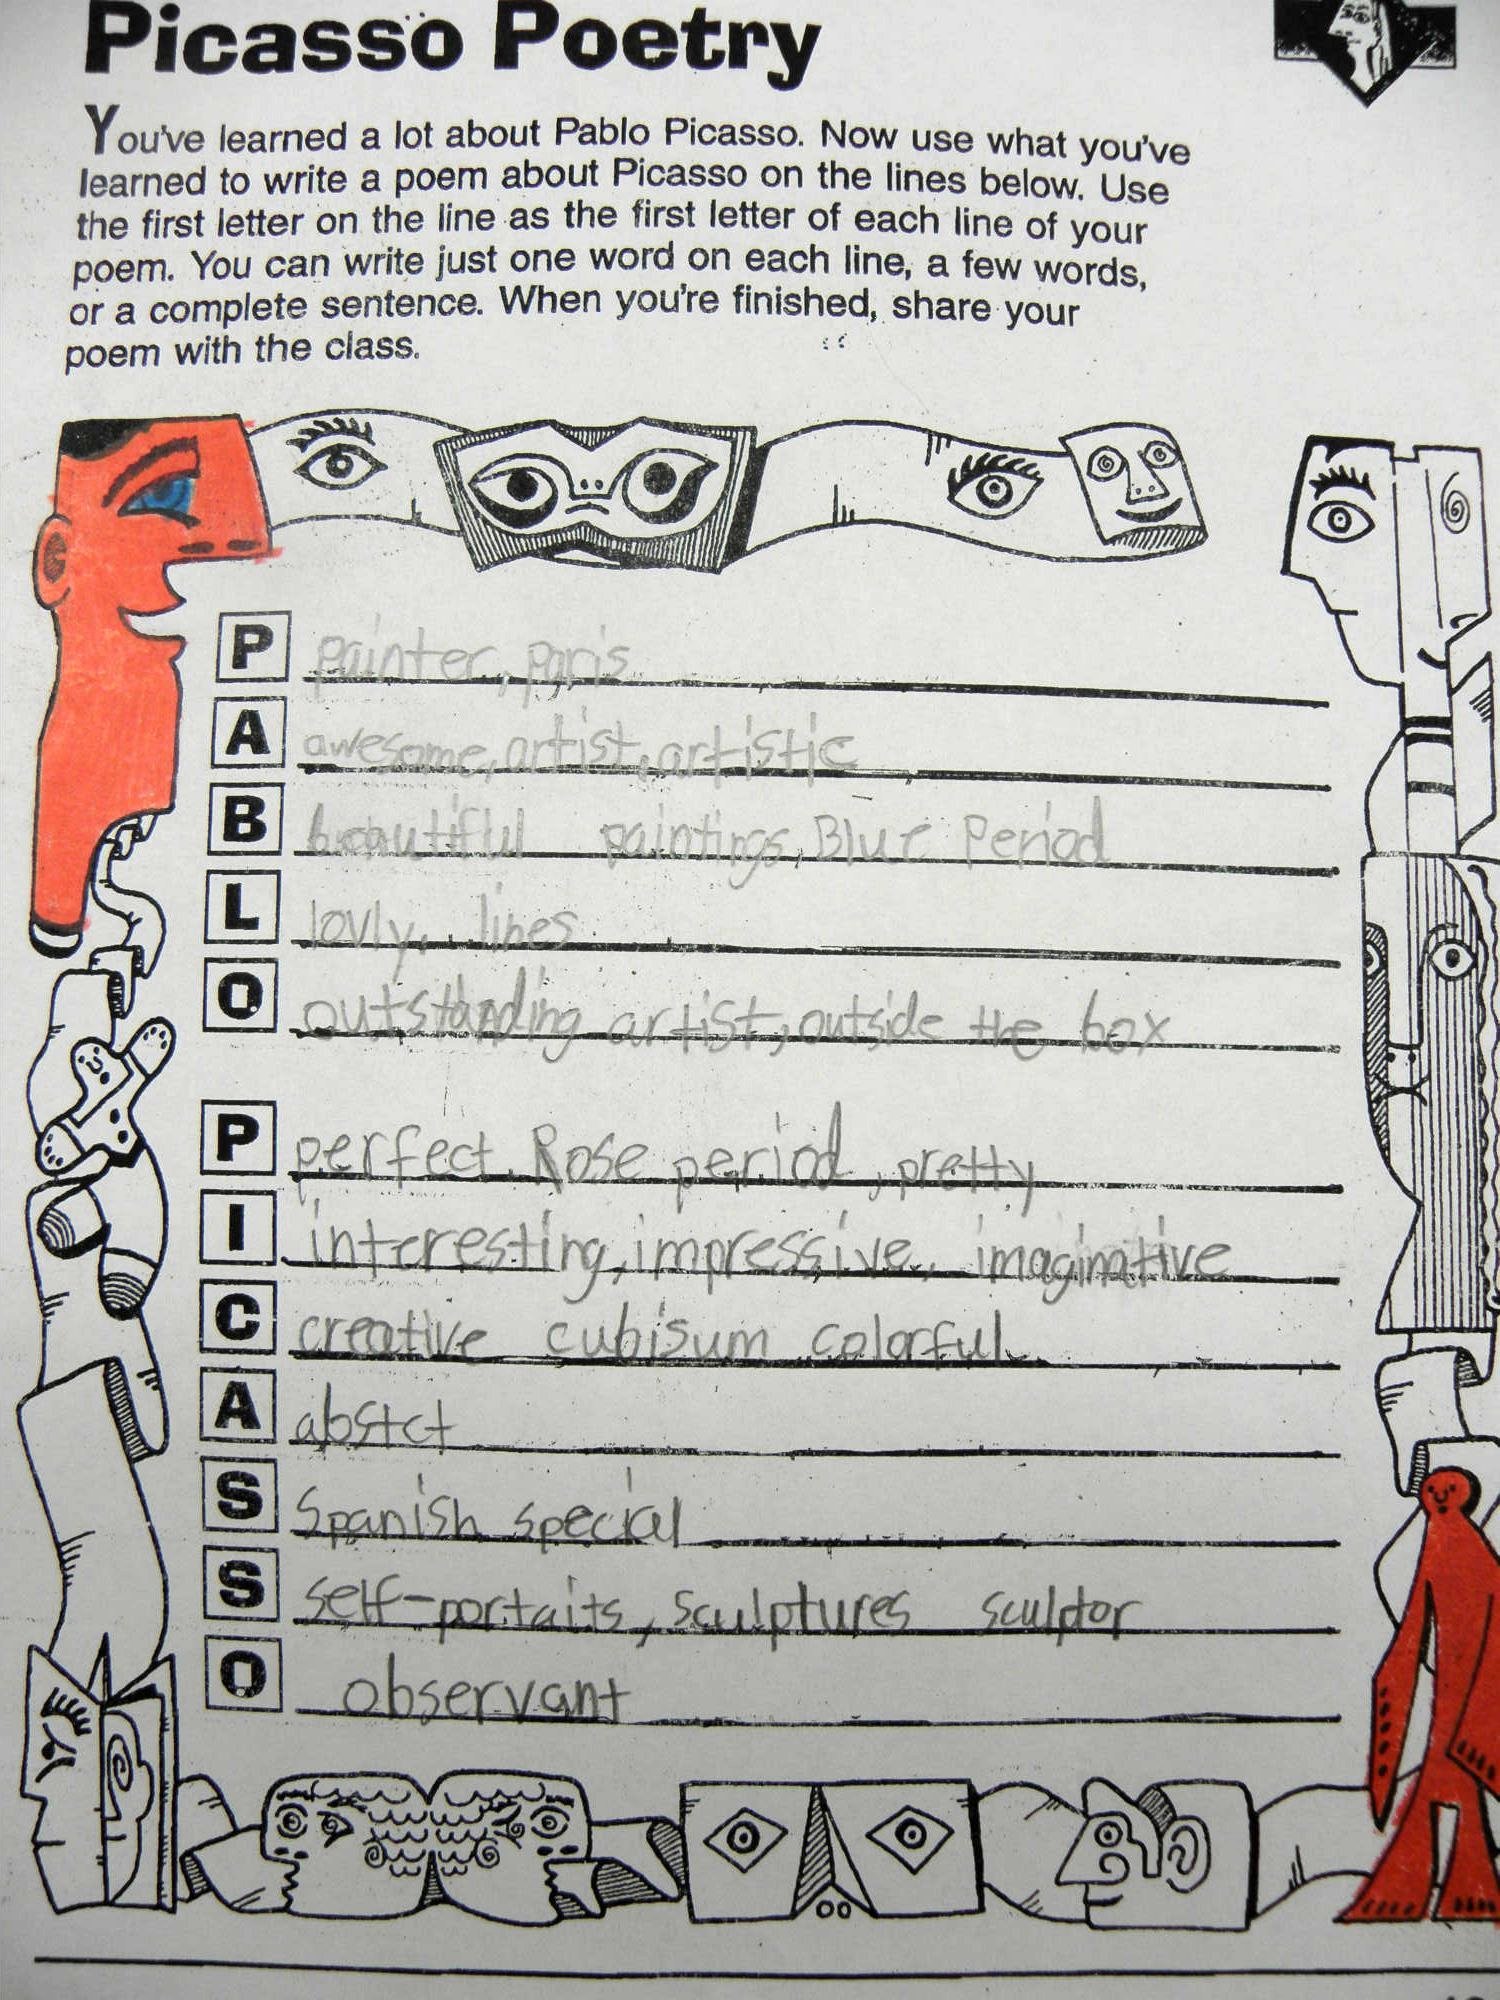 Picasso Poetry
You've learned a lot about Pablo Picasso. Now use what you've
learned to write a poem about Picasso on the lines below. Use
the first letter on the line as the first letter of each line of your
poem. You can write just one word on each line, a few words,
or a complete sentence. When you're finished, share your
poem with the class.
P painter, paris
A awesome, artist, artistic
B beautiful paintings, Blue Period
L lovly, lines
O outstanding artist, outside the box
P perfect, Rose period, pretty
I interesting, impressive, imaginative
C creative cubisum colorful
A abstct
S Spanish special
S self-portaits, sculptures sculptor
O observant